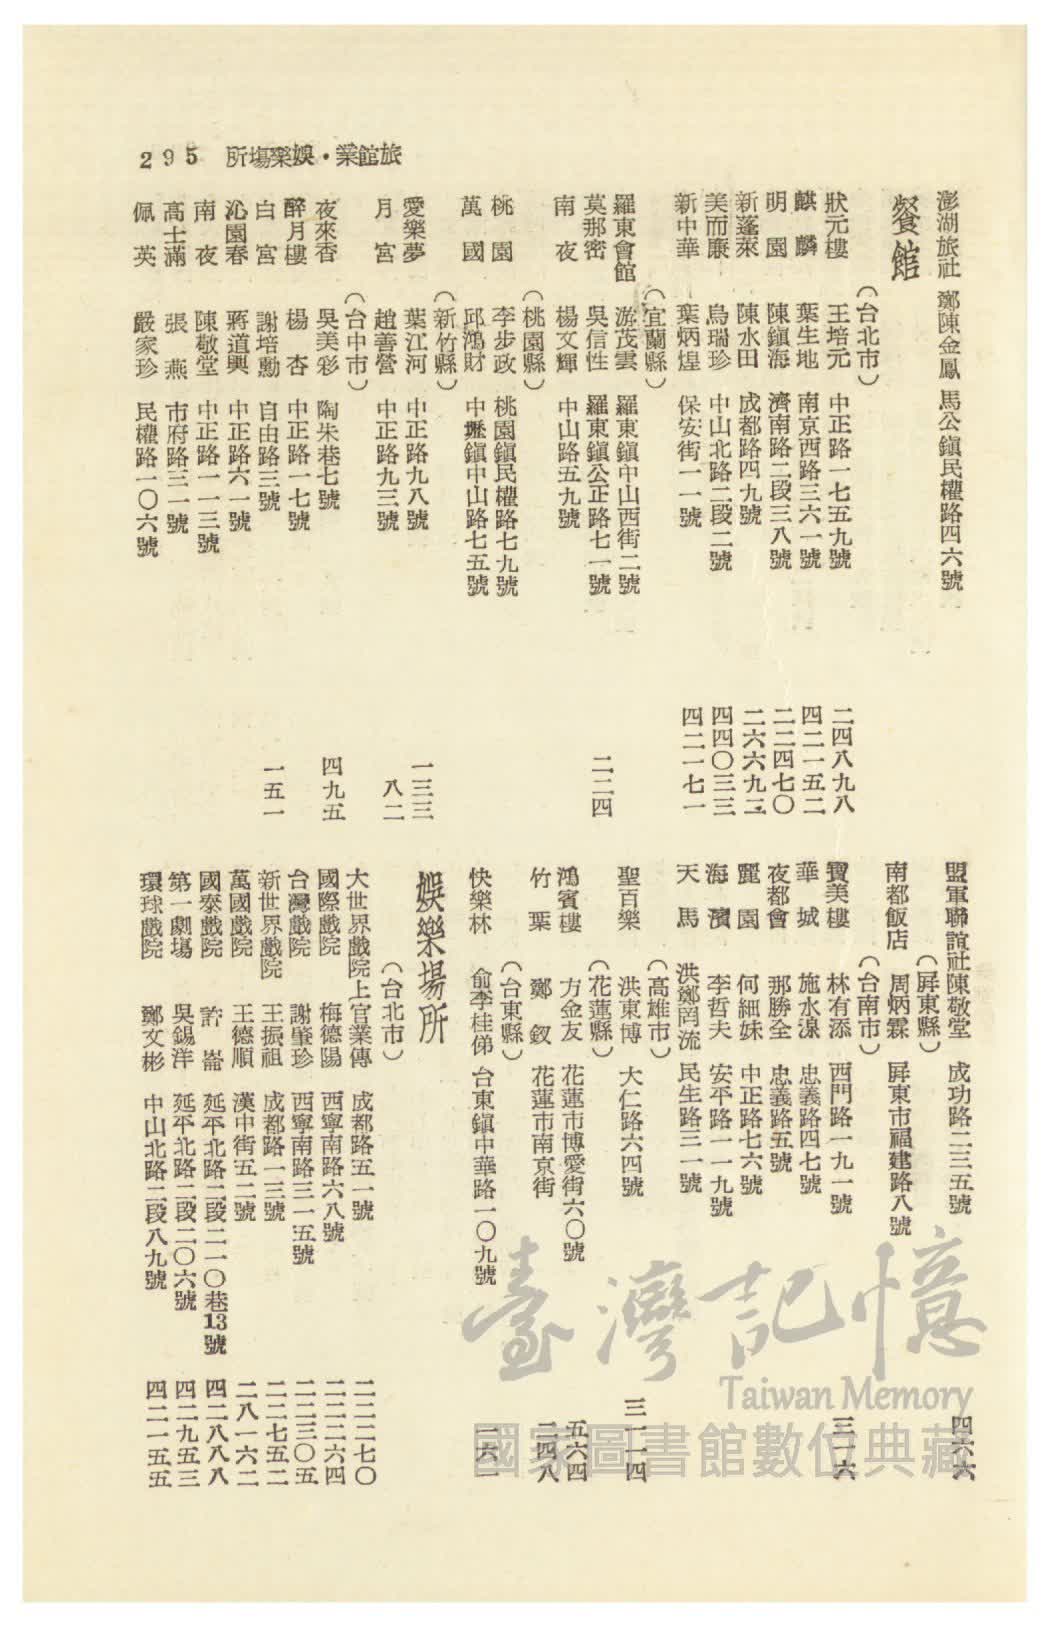 295 所場樂娛・業館旅
澎湖旅社 鄭陳金鳳 馬公鎮民權路四六號
餐館
（台北市）
狀元樓 王培元 中正路一七五九號 二四八九八
麒麟 葉生地 南京西路三六一號 四二一五二
明園 陳鎮海 濟南路二段三八號 二二四七〇
新蓬萊 陳水田 成都路四九號 二六六九二
美而廉 烏瑞珍 中山北路二段二號 四四〇三三
新中華 葉炳煌 保安街一一號 四二一七一
（宜蘭縣）
羅東會館 游茂雲 羅東鎮中山西街二號
莫那密 吳信性 羅東鎮公正路七一號 二二四
南夜 楊文輝 中山路五九號
（桃園縣）
桃園 李步政 桃園鎮民權路七九號
萬國 邱鴻財 中壢鎮中山路七五號
（新竹縣）
愛樂夢 葉江河 中正路九八號 一三三
月宮 趙善營 中正路九三號 八二
（台中市）
夜來香 吳美彩 陶朱巷七號 四九五
醉月樓 楊杏 中正路一七號
白宮 謝培勳 自由路三號 一五一
沁園春 蔣道興 中正路六一號
南夜 陳敬堂 中正路一一三號
高士滿 張燕 市府路三一號
佩英 嚴家珍 民權路一〇六號
盟軍聯誼社 陳敬堂 成功路二三五號 四六六
（屏東縣）
南都飯店 周炳霖 屏東市福建路八號
（台南市）
寶美樓 林有添 西門路一九一號 三一六
華城 施水湶 忠義路四七號
夜都會 那勝全 忠義路五號
麗園 何細妹 中正路七六號
海濱 李哲夫 安平路一一九號
天馬 洪鄭罔流 民生路三一號
（高雄市）
聖百樂 洪東博 大仁路六四號 三一一四
（花蓮縣）
鴻賓樓 方金友 花蓮市博愛街六〇號 五六四
竹葉 鄭釵 花蓮市南京街 二四八
（台東縣）
快樂林 俞李桂俤 台東鎮中華路一〇九號 一六一
娛樂場所
（台北市）
大世界戲院 上官業傳 成都路五一號 二二二七〇
國際戲院 梅德陽 西寧南路六八號 二二二六四
台灣戲院 謝肇珍 西寧南路三一五號 二二三〇五
新世界戲院 王振祖 成都路一三號 二二七五二
萬國戲院 王德順 漢中街五二號 二八一六二
國泰戲院 許崙 延平北路二段二一〇巷13號 四二八八八
第一劇場 吳錫洋 延平北路二段二〇六號 四二九五三
環球戲院 鄭文彬 中山北路二段八九號 四二一五五
臺灣記憶
Taiwan Memory
國家圖書館數位典藏